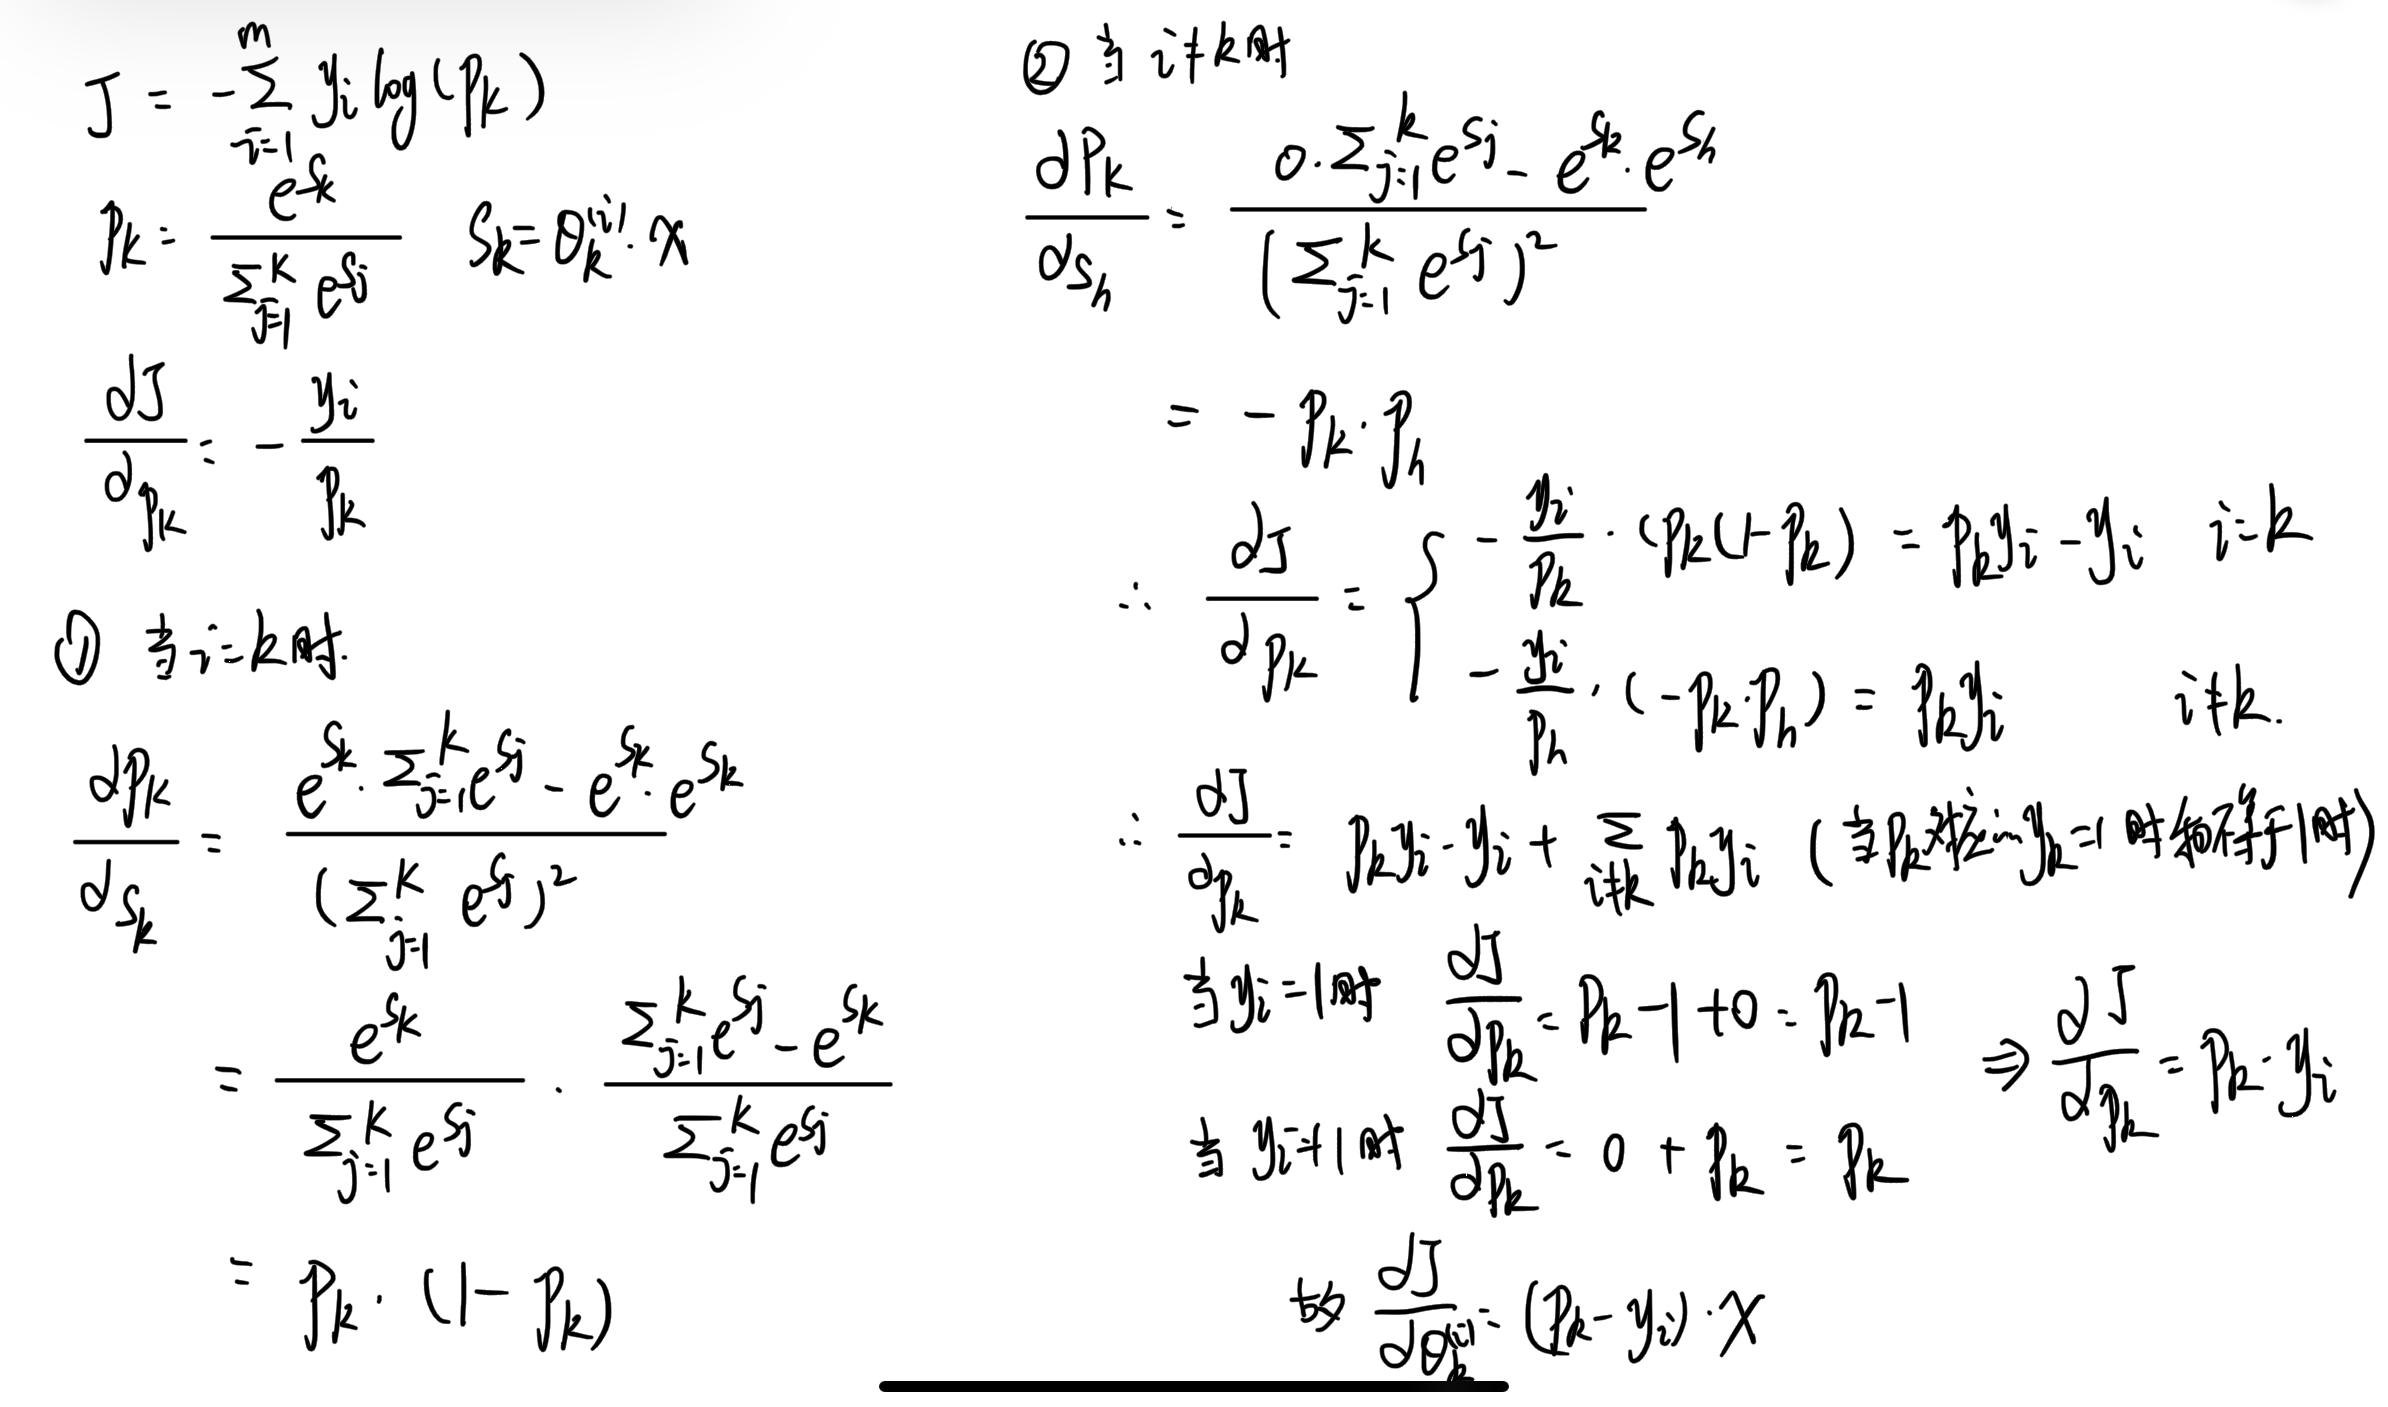 J = -∑_{i=1}^{m} y_i log(p_k)
p_k = e^{s_k} / ∑_{j=1}^{K} e^{s_j}    s_k = θ_k^{(i)} · x
dJ/dp_k = - y_i/p_k
① 当 i=k 时.
dp_k/ds_k = (e^{s_k} · ∑_{j=1}^{k} e^{s_j} - e^{s_k} · e^{s_k}) / (∑_{j=1}^{K} e^{s_j})^2
= e^{s_k} / ∑_{j=1}^{K} e^{s_j} · (∑_{j=1}^{k} e^{s_j} - e^{s_k}) / ∑_{j=1}^{K} e^{s_j}
= p_k · (1 - p_k)
② 当 i≠k 时
dp_k/ds_h = (0 · ∑_{j=1}^{k} e^{s_j} - e^{s_k} · e^{s_h}) / (∑_{j=1}^{k} e^{s_j})^2
= - p_k · p_h
∴ dJ/dp_k = { - y_i/p_k · (p_k(1-p_k) = p_k y_i - y_i    i=k
- y_i/p_h · (-p_k · p_h) = p_k y_i    i≠k.
∴ dJ/dp_k = p_k y_i - y_i + ∑_{i≠k} p_k y_i (当 p_k 对应 y_k=1 时和不等于1时)
当 y_i=1时 dJ/dp_k = p_k - 1 + 0 = p_k - 1
⇒ dJ/dp_k = p_k - y_i
当 y_i≠1时 dJ/dp_k = 0 + p_k = p_k
故 dJ/dθ_k^{(i)} = (p_k - y_i) · x